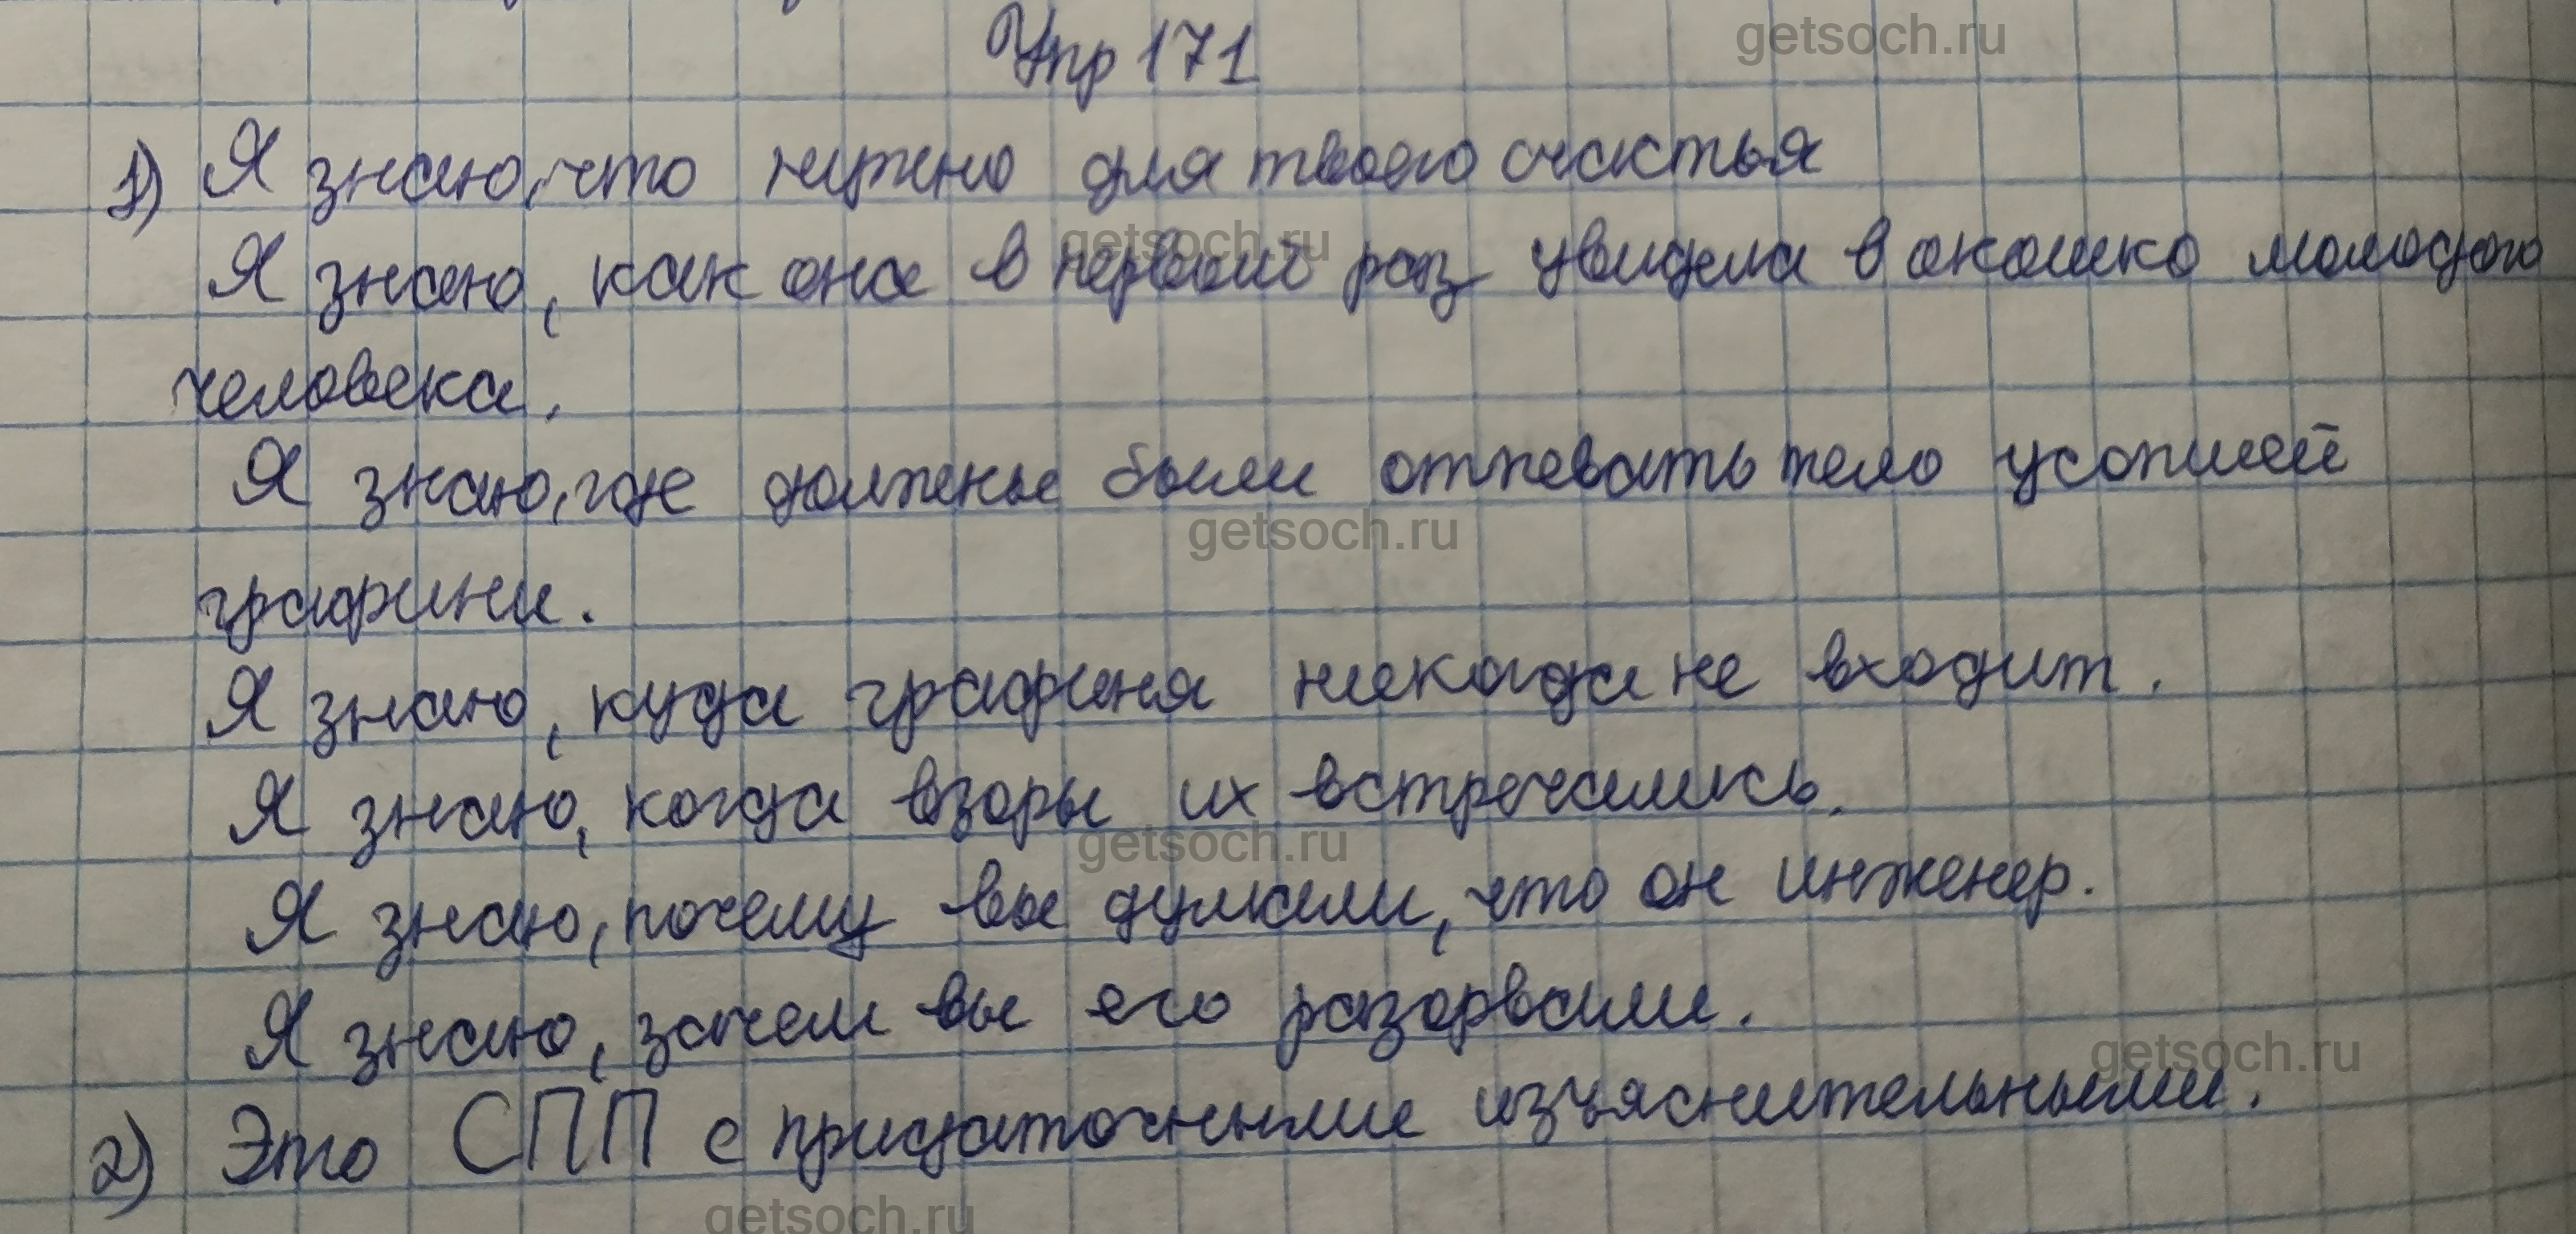 getsoch.ru
Упр 171
1) Я знаю, что нужно для твоего счастья
getsoch.ru
Я знаю, как она в первый раз увидела в окошко молодого
человека.
Я знаю, где должны были отпевать тело усопшей
getsoch.ru
графини.
Я знаю, куда графиня никогда не входит.
Я знаю, когда взоры их встречались.
getsoch.ru
Я знаю, почему вы думали, что он инженер.
Я знаю, зачем вы его разорвали.
getsoch.ru
2) Это СПП с придаточными изъяснительными.
getsoch.ru